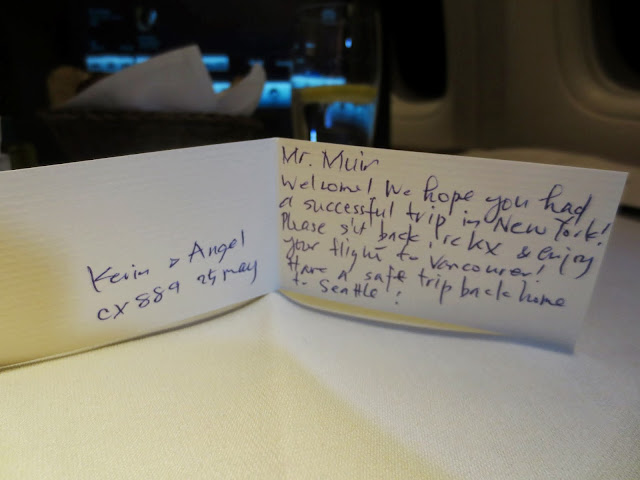 Kevin & Angel
CX 889 25 May
Mr. Muir
Welcome! We hope you had
a successful trip in New York!
Please sit back, relax & enjoy
your flight to Vancouver!
Have a safe trip back home
to Seattle!